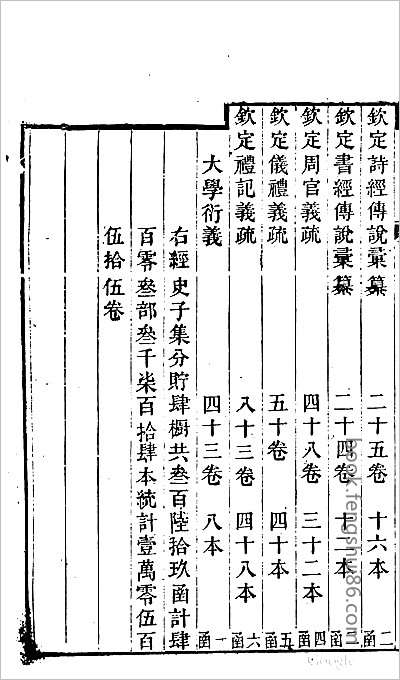 欽定詩經傳說彙纂 二十五卷 十六本 二函
欽定書經傳說彙纂 二十四卷 十二本 函
欽定周官義疏 四十八卷 三十二本 四函
欽定儀禮義疏 五十卷 四十本 五函
欽定禮記義疏 八十三卷 四十八本 六函
大學衍義 四十三卷 八本 一函
右經史子集分貯肆櫥共叁百陸拾玖函計肆
百零叁部叁千柒百拾肆本統計壹萬零伍百
伍拾伍卷